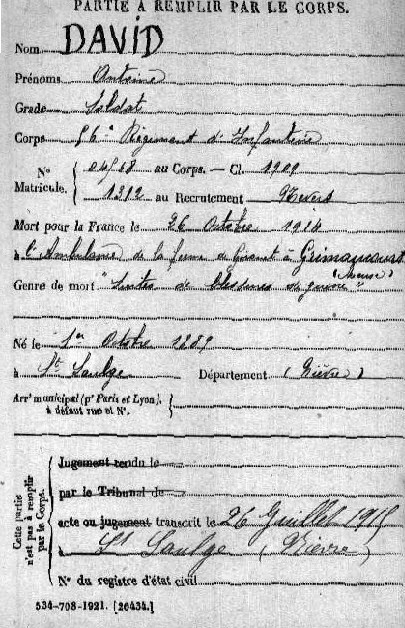 PARTIE A REMPLIR PAR LE CORPS.
Nom DAVID
Prénoms Antoine
Grade Soldat
Corps 56e Régiment d'Infanterie
N° Matricule. { au Corps. — Cl. 1909
1312 au Recrutement Nevers
Mort pour la France le 26 Octobre 1914
à l'Ambulance de la ferme de à
(Meuse)
Genre de mort "Suites de blessures de guerre"
Né le 1er Octobre 1889
à St Saulge Département (Nièvre)
Arrt municipal (pr Paris et Lyon), à défaut rue et N°. {
Cette partie n'est pas à remplir par le Corps.
Jugement rendu le
par le Tribunal de
acte ou jugement transcrit le 26 Juillet 1915
à St Saulge (Nièvre)
N° du registre d'état civil
534-708-1921. [26434.]